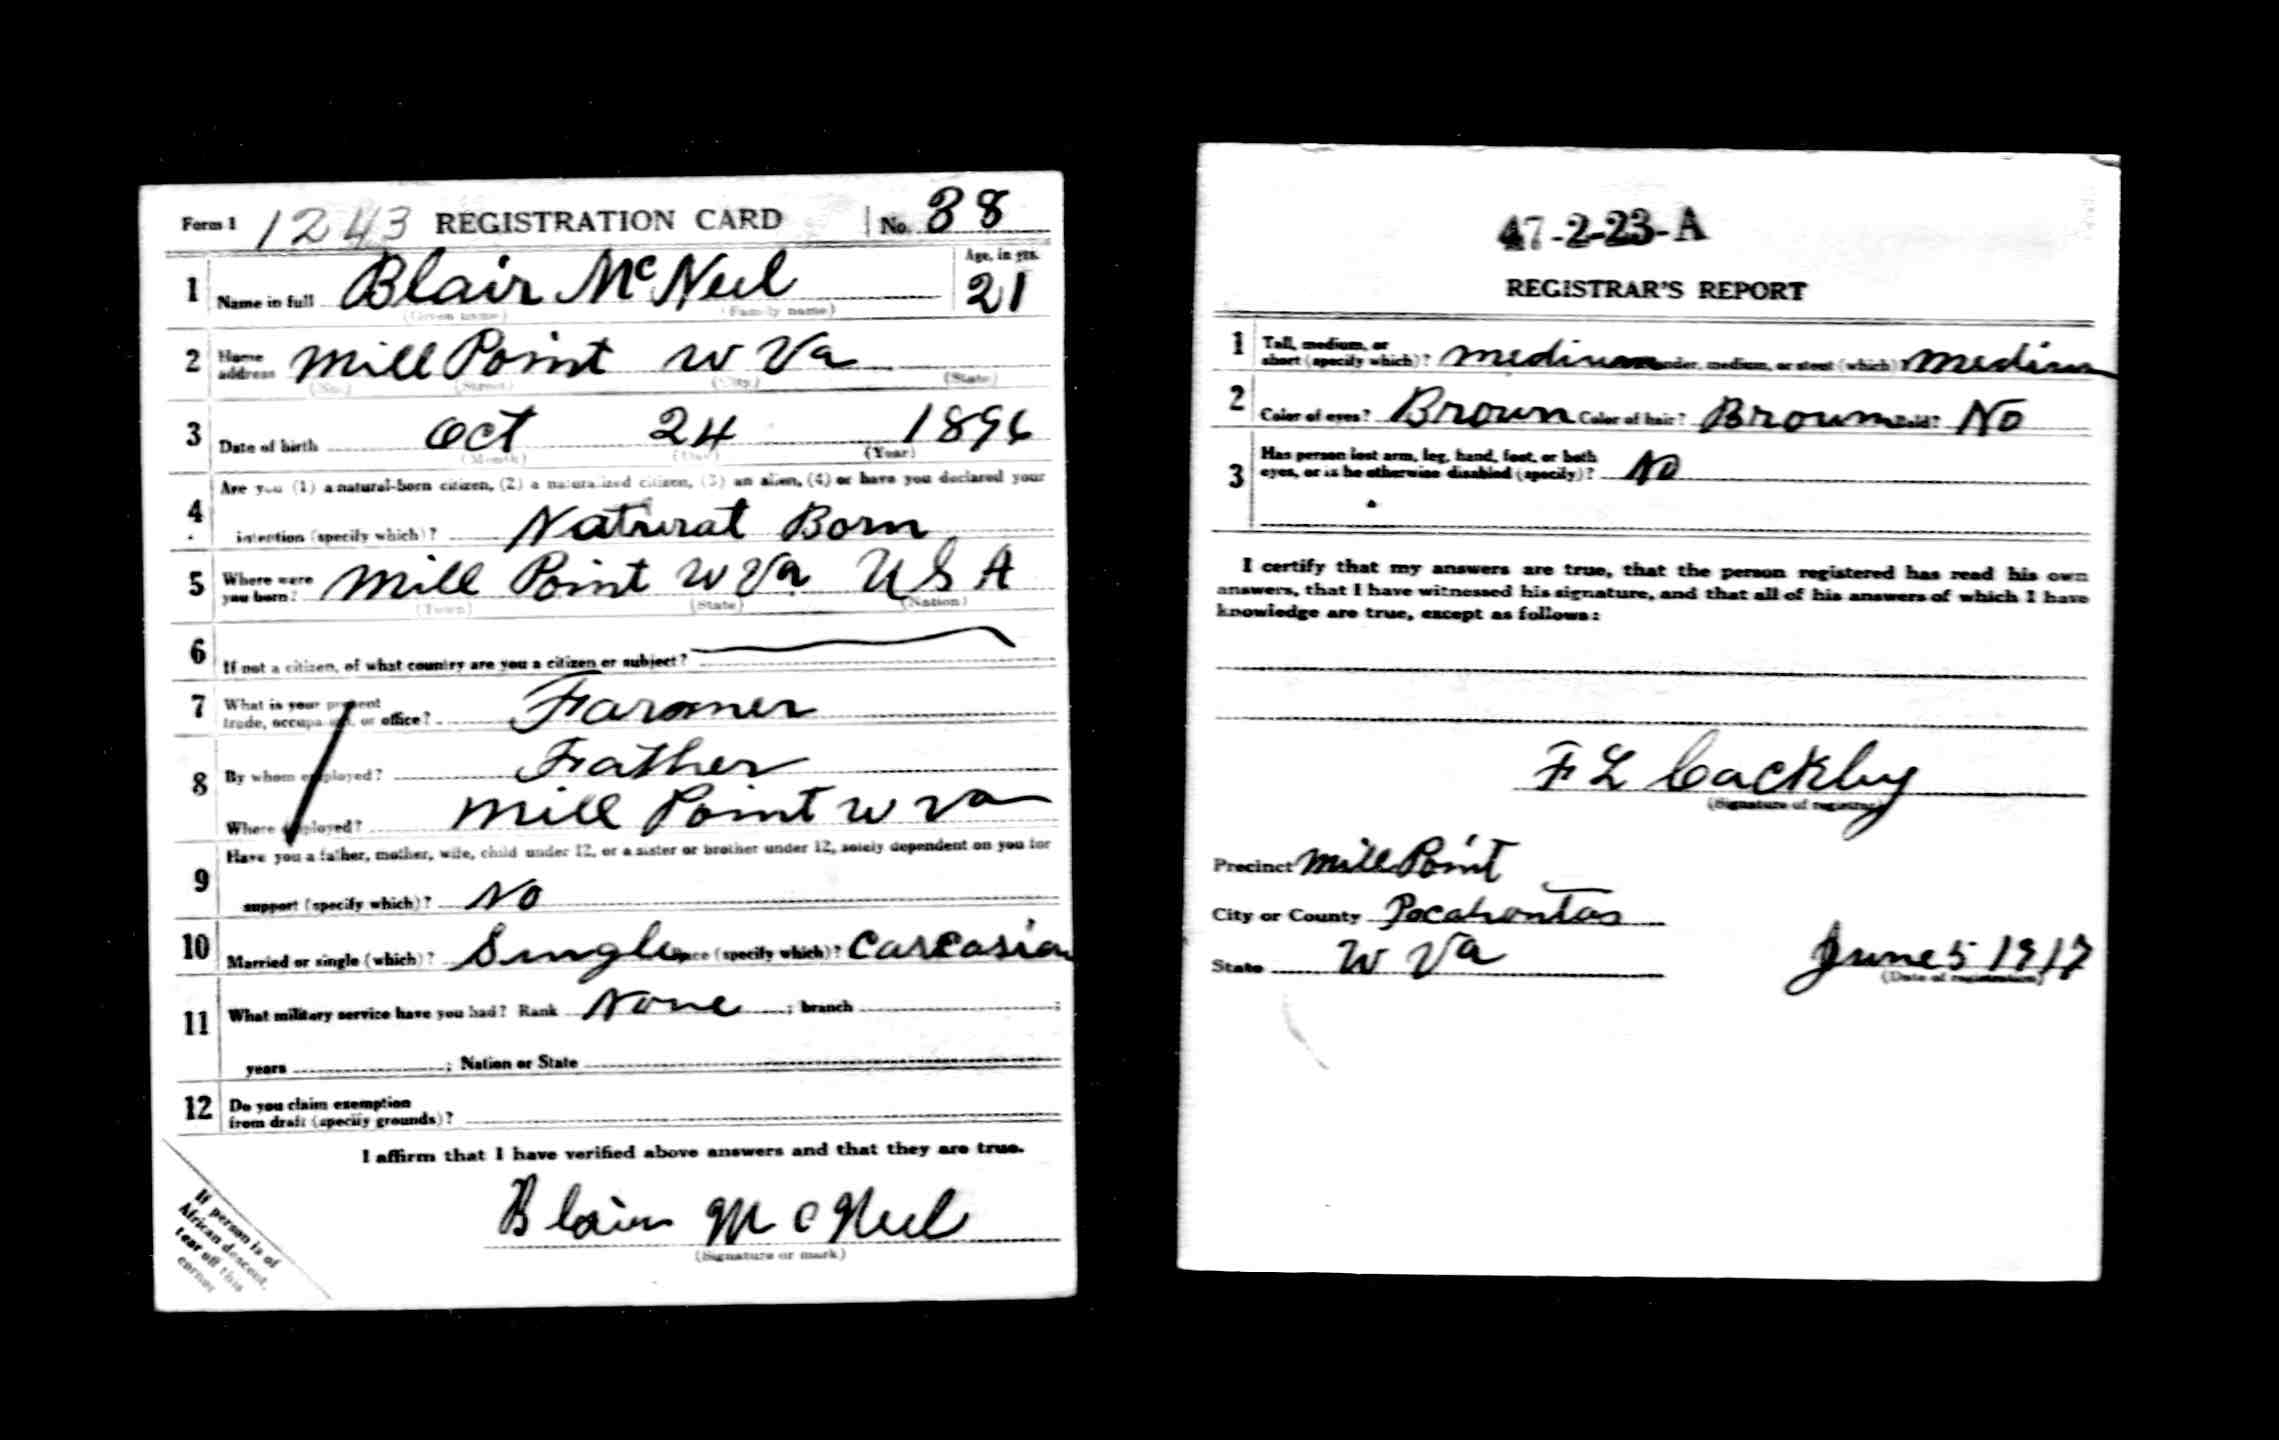 Form 1 1243 REGISTRATION CARD No. 38
1 Name in full Blair McNeel Age, in yrs. 21
(Given name) (Family name)
2 Home address Mill Point W Va
(No.) (Street) (City) (State)
3 Date of birth Oct 24 1896
(Month) (Day) (Year)
4 Are you (1) a natural-born citizen, (2) a naturalized citizen, (3) an alien, (4) or have you declared your
intention (specify which)? Natural Born
5 Where were you born? Mill Point W Va U S A
(Town) (State) (Nation)
6 If not a citizen, of what country are you a citizen or subject?
7 What is your present
trade, occupation, or office? Farmer
8 By whom employed? Father
Where employed? Mill Point W Va
9 Have you a father, mother, wife, child under 12, or a sister or brother under 12, solely dependent on you for
support (specify which)? No
10 Married or single (which)? Single Race (specify which)? Carcasian
11 What military service have you had? Rank None ; branch ;
years ; Nation or State
12 Do you claim exemption
from draft (specify grounds)?
I affirm that I have verified above answers and that they are true.
Blair McNeel
(Signature or mark)
If person is of
African descent,
tear off this
corner
47-2-23-A
REGISTRAR'S REPORT
1 Tall, medium, or
short (specify which)? medium Slender, medium, or stout (which)? medium
2 Color of eyes? Brown Color of hair? Brown Bald? No
3 Has person lost arm, leg, hand, foot, or both
eyes, or is he otherwise disabled (specify)? No
I certify that my answers are true, that the person registered has read his own
answers, that I have witnessed his signature, and that all of his answers of which I have
knowledge are true, except as follows:
F L Cackley
(Signature of registrar)
Precinct Mill Point
City or County Pocahontas
State W Va June 5 1917
(Date of registration)